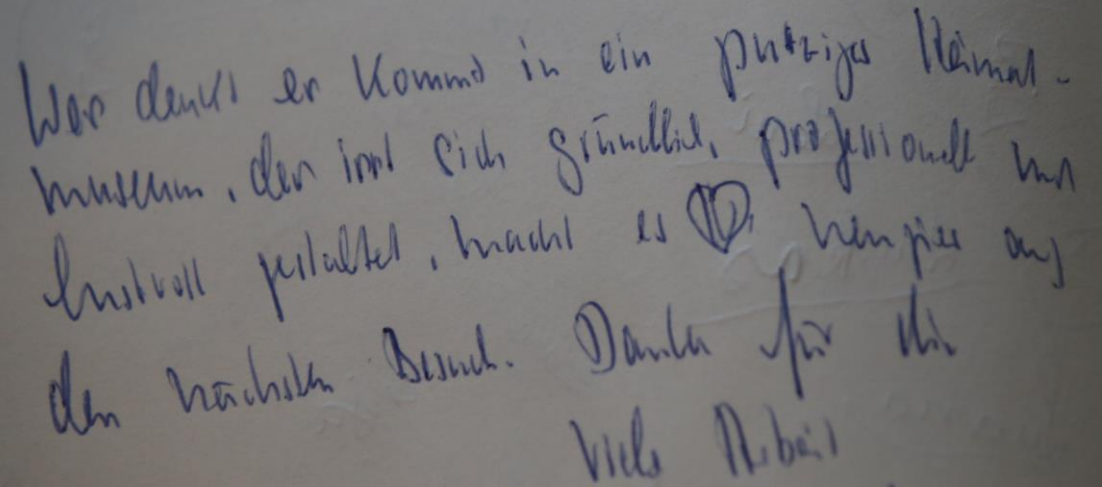 Wer denkt er kommt in ein putziges Heimat-
museum, der irrt sich gründlich, professionell und
lustvoll gestaltet, macht es neugier auf
den nächsten Besuch. Danke für die
viele Arbeit